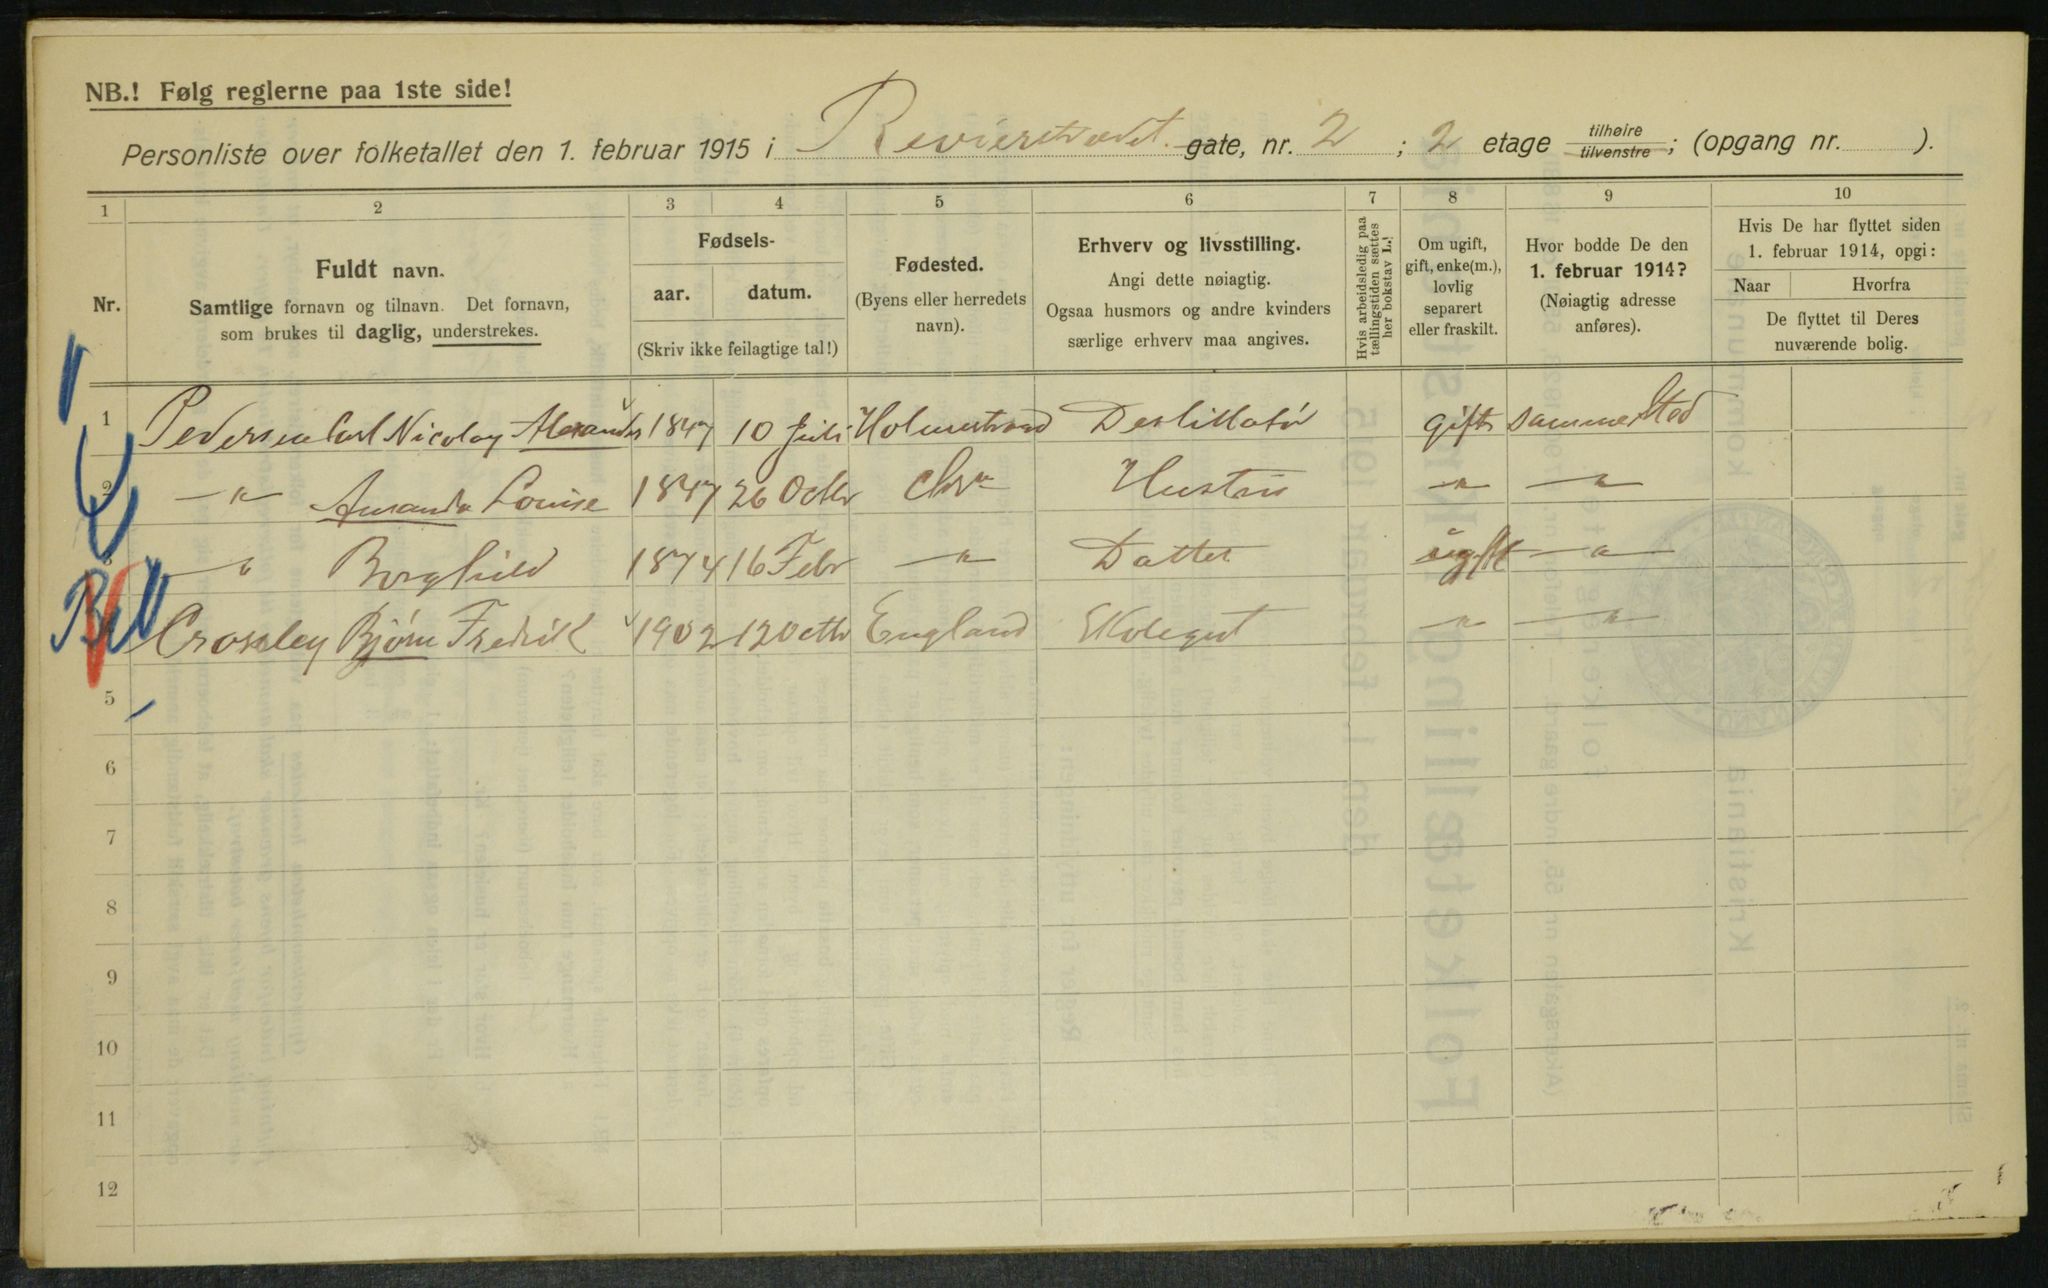 NB.! Følg reglerne paa 1ste side!
Personliste over folketallet den 1. februar 1915 i Revierstrædet gate, nr. 2 ; 2 etage tilhøire tilvenstre ; (opgang nr. ).
1 2 3 4 5 6 7 8 9 10
Nr.
Fuldt navn.
Samtlige fornavn og tilnavn. Det fornavn,
som brukes til daglig, understrekes.
Fødsels-
aar. datum.
(Skriv ikke feilagtige tal!)
Fødested.
(Byens eller herredets
navn).
Erhverv og livsstilling.
Angi dette nøiagtig.
Ogsaa husmors og andre kvinders
særlige erhverv maa angives.
Hvis arbeidsledig paa
tællingstiden sættes
her bokstav L.!
Om ugift,
gift, enke(m.),
lovlig
separert
eller fraskilt.
Hvor bodde De den
1. februar 1914?
(Nøiagtig adresse
anføres).
Hvis De har flyttet siden
1. februar 1914, opgi:
Naar Hvorfra
De flyttet til Deres
nuværende bolig.
1 Pedersen Carl Nicolay Alexander 1847 10 Juli Holmestrand Destillatør gift samme Sted
2 —"— Amanda Louise 1847 26 Octbr Chra Hustru —"— —"—
3 —"— Borghild 1874 16 Febr —"— Datter ugift —"—
4 Crossley Bjørn Fredrik 1902 12 Octbr England Skolegut —"— —"—
5
6
7
8
9
10
11
12